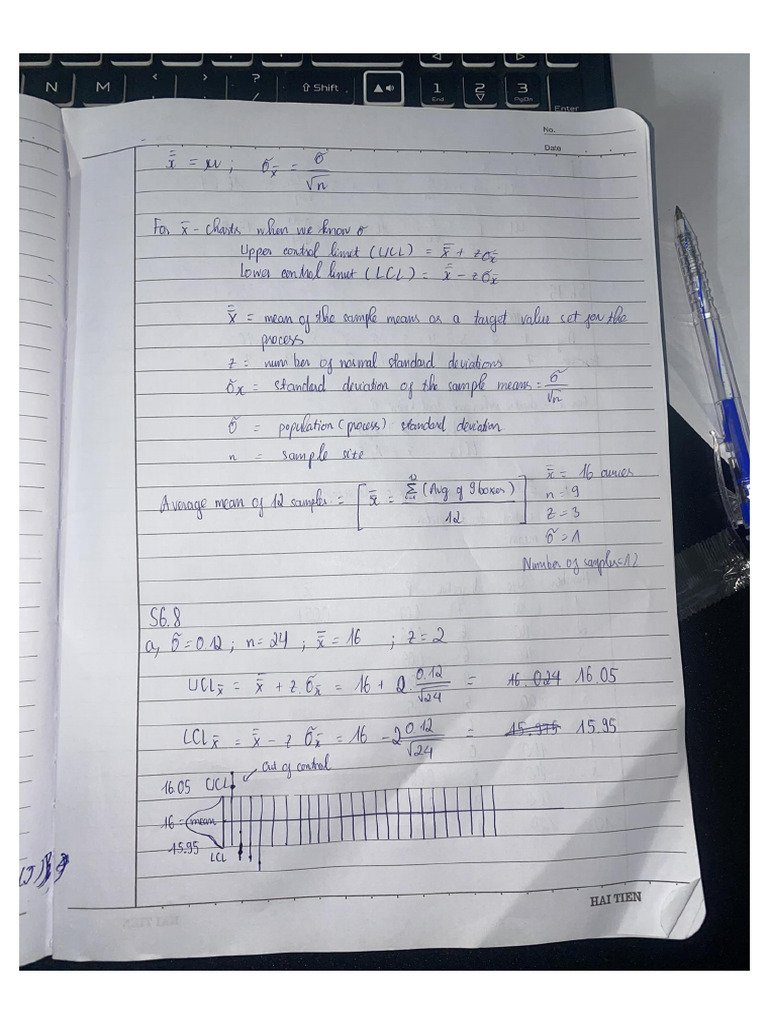 N M ' , . ? / ⇧ Shift ▲ 1 End 2 ▽ 3 PgDn Enter
No.
Date
x̿ = μ ; σx̄ = σ/√n
For x̄ - charts when we know σ
Upper control limit (UCL) = x̿ + zσx̄
Lower control limit (LCL) = x̿ - zσx̄
x̿ = mean of the sample means or a target value set for the
process
z = number of normal standard deviations
σx = standard deviation of the sample means = σ/√n
σ = population (process) standard deviation
n = sample size
Average mean of 12 samples = [x̿ = Σ (Avg of 9 boxes) / 12]
x̿ = 16 ounces
n = 9
z = 3
σ = 1
Number of samples = 12
S6.8
a, σ = 0.12 ; n = 24 ; x̿ = 16 ; z = 2
UCLx̄ = x̿ + z.σx̄ = 16 + 2. 0.12/√24 = 16.024 16.05
LCLx̄ = x̿ - z σx̄ = 16 - 2 0.12/√24 = 15.975 15.95
Out of control
16.05 UCL
16 = mean
15.95
LCL
HAI TIEN